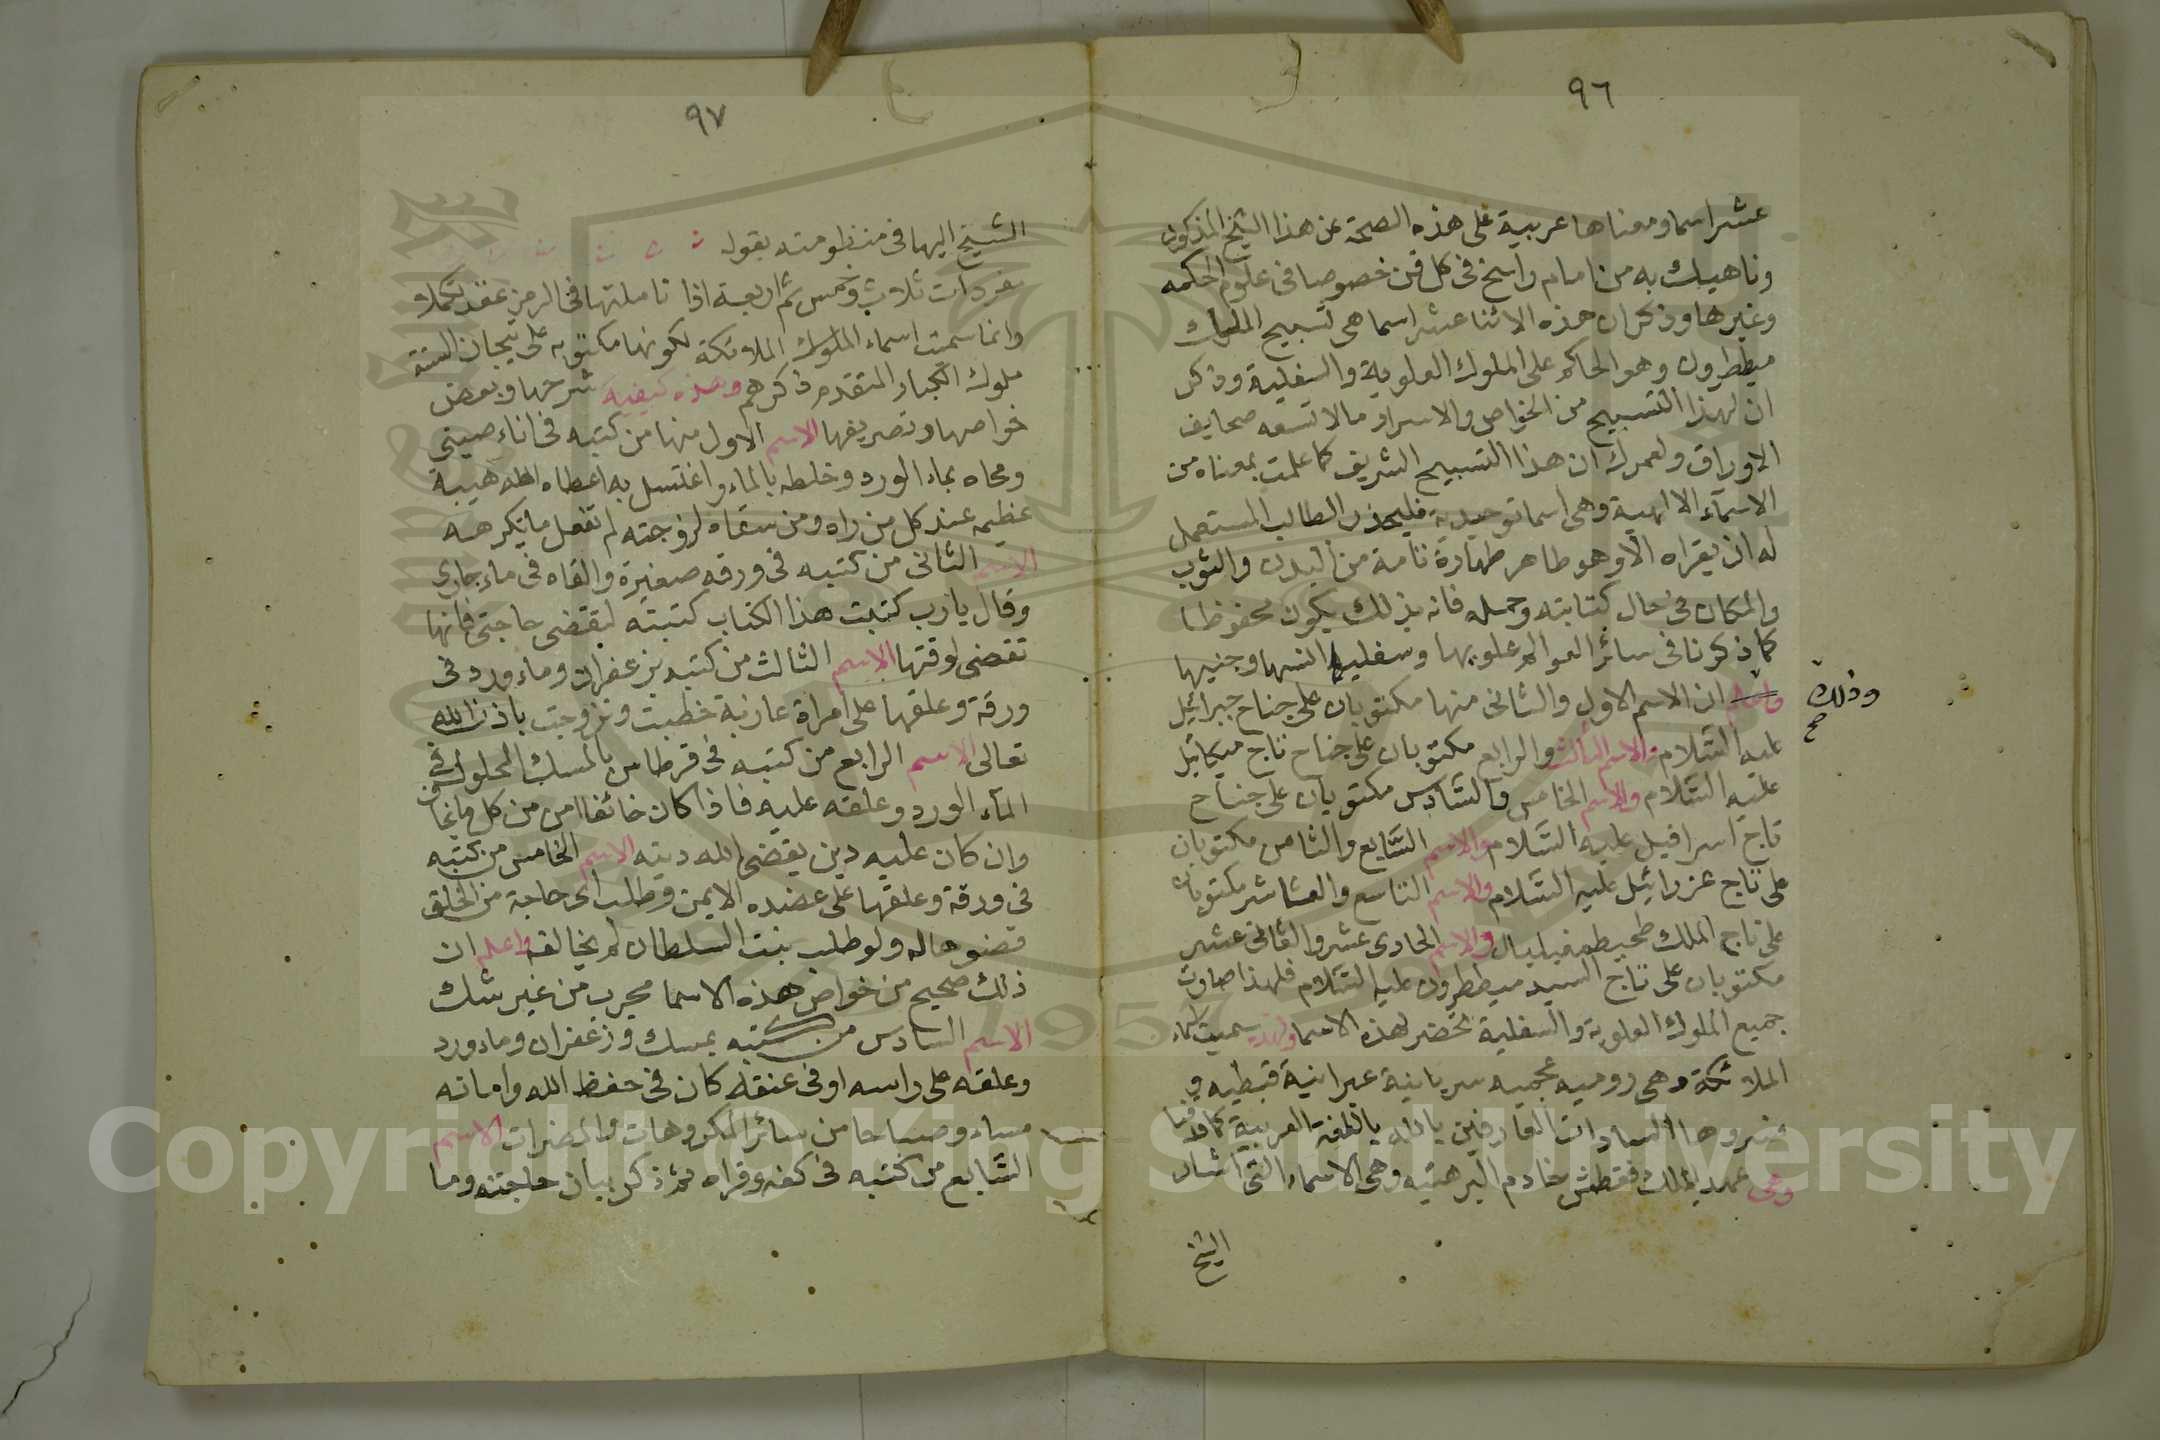 ٩٦
عشر اسما ومعناها عربية على هذه الصحة عن هذا الشيخ المذكور
وناهيك به من امام راسخ فى كل فن خصوصا فى علوم الحكمه
وغيرها وذكر ان هذه الاثنا عشر اسما هى تسبيح الملك
ميططرون وهو الحاكم على الملوك العلوية والسفلية وذكر
ان لهذا التسبيح من الخواص والاسرار مالا تسعه صحايف
الاوراق ولعمرك ان هذا التسبيح الشريف كما علمت بمعناه من
الاسمآء الالهية وهى اسما توحيدية فليحذر الطالب المستعمل
له ان يقراه الّا وهو طاهر طهارة تامة من البدن والثوب
والمكان فى حال كتابته وحمله فانه بذلك يكون محفوظا
كما ذكرنا فى سائر العوالم علويها وسفليها انسها وجنيها
واعلم ان الاسم الاول والثانى منها مكتوبان على جناح جبرائيل
وذلك
صح
عليه السّلام والاسم الثالث والرابع مكتوبان على جناح تاج ميكائيل
عليه السّلام والاسم الخامس والسّادس مكتوبان على جناح
تاج اسرافيل عليه السّلام والاسم السّابع والثامن مكتوبان
على تاج عزرائيل عليه السّلام والاسم التاسع والعشاشر مكتوبان
على تاج الملك طحيطمغيليال والاسم الحادى عشر والثانى عشر
مكتوبان على تاج السيد ميططرون عليه السّلام فلهذا صارت
جميع الملوك العلوية والسفلية تخضع لهذه الاسما ولهذا سميت اسماء
الملائكة وهى روميه عجميه سريانية عبرانية قبطيه
فسروها السادات العارفين بالله باللغة العربية كما قدمنا
وهى عهد الملك فقطش خادم البرهتيه وهى الاسماء التى اشار
الشيخ
٩٧
الشيخ اليها فى منظومته بقوله
بفردات ثلاث وخمس ثم اربعة اذا تاملتها فى الرمز عقد تكملا
وانما سميت اسماء الملوك الملائكة لكونها مكتوبه على تيجان الستة
ملوك الكبار المتقدم ذكرهم وهذه كيفية شرحها وبعض
خواصها وتصريفها الاسم الاول منها من كتبه فى اناء صينى
ومحاه بماء الورد وخلطه بالماء واغتسل به اعطاه الله هيبة
عظيمه عند كل من راه ومن سقاه لزوجته لم تفعل ما يكرهه
الاسم الثانى من كتبه فى ورقه صغيرة والقاه فى ماء جارى
وقال يارب كتبت هذا الكتاب كتبته لتقضى حاجتى فانها
تقضى لوقتها الاسم الثالث من كتبه بزعفران وماء ورد فى
ورقة وعلقها على امراة عازبة خطبت وتزوجت باذن الله
تعالى الاسم الرابع من كتبه فى قرطاس بالمسك المحلول فى
المآء الورد وعلقه عليه فاذا كان خائفا امن من كل ما يخاف
وان كان عليه دين يقضى الله دينه الاسم الخامس من كتبه
فى ورقة وعلقها على عضده الايمن وطلب اى حاجة من الخلق
قضوها له ولو طلب بنت السلطان لم يخالفه واعلم ان
ذلك صحيح من خواص هذه الاسما مجرب من غير شك
الاسم السادس من كتبه بمسك وزعفران وماء ورد
وعلقه على راسه او فى عنقه كان فى حفظ الله وامانه
مساء وصباحا من سائر المكروهات والمضرات الاسم
السّابع من كتبه فى كفه وقراه ثم ذكر بيان حاجته وما
Copyright © King Saud University
1957